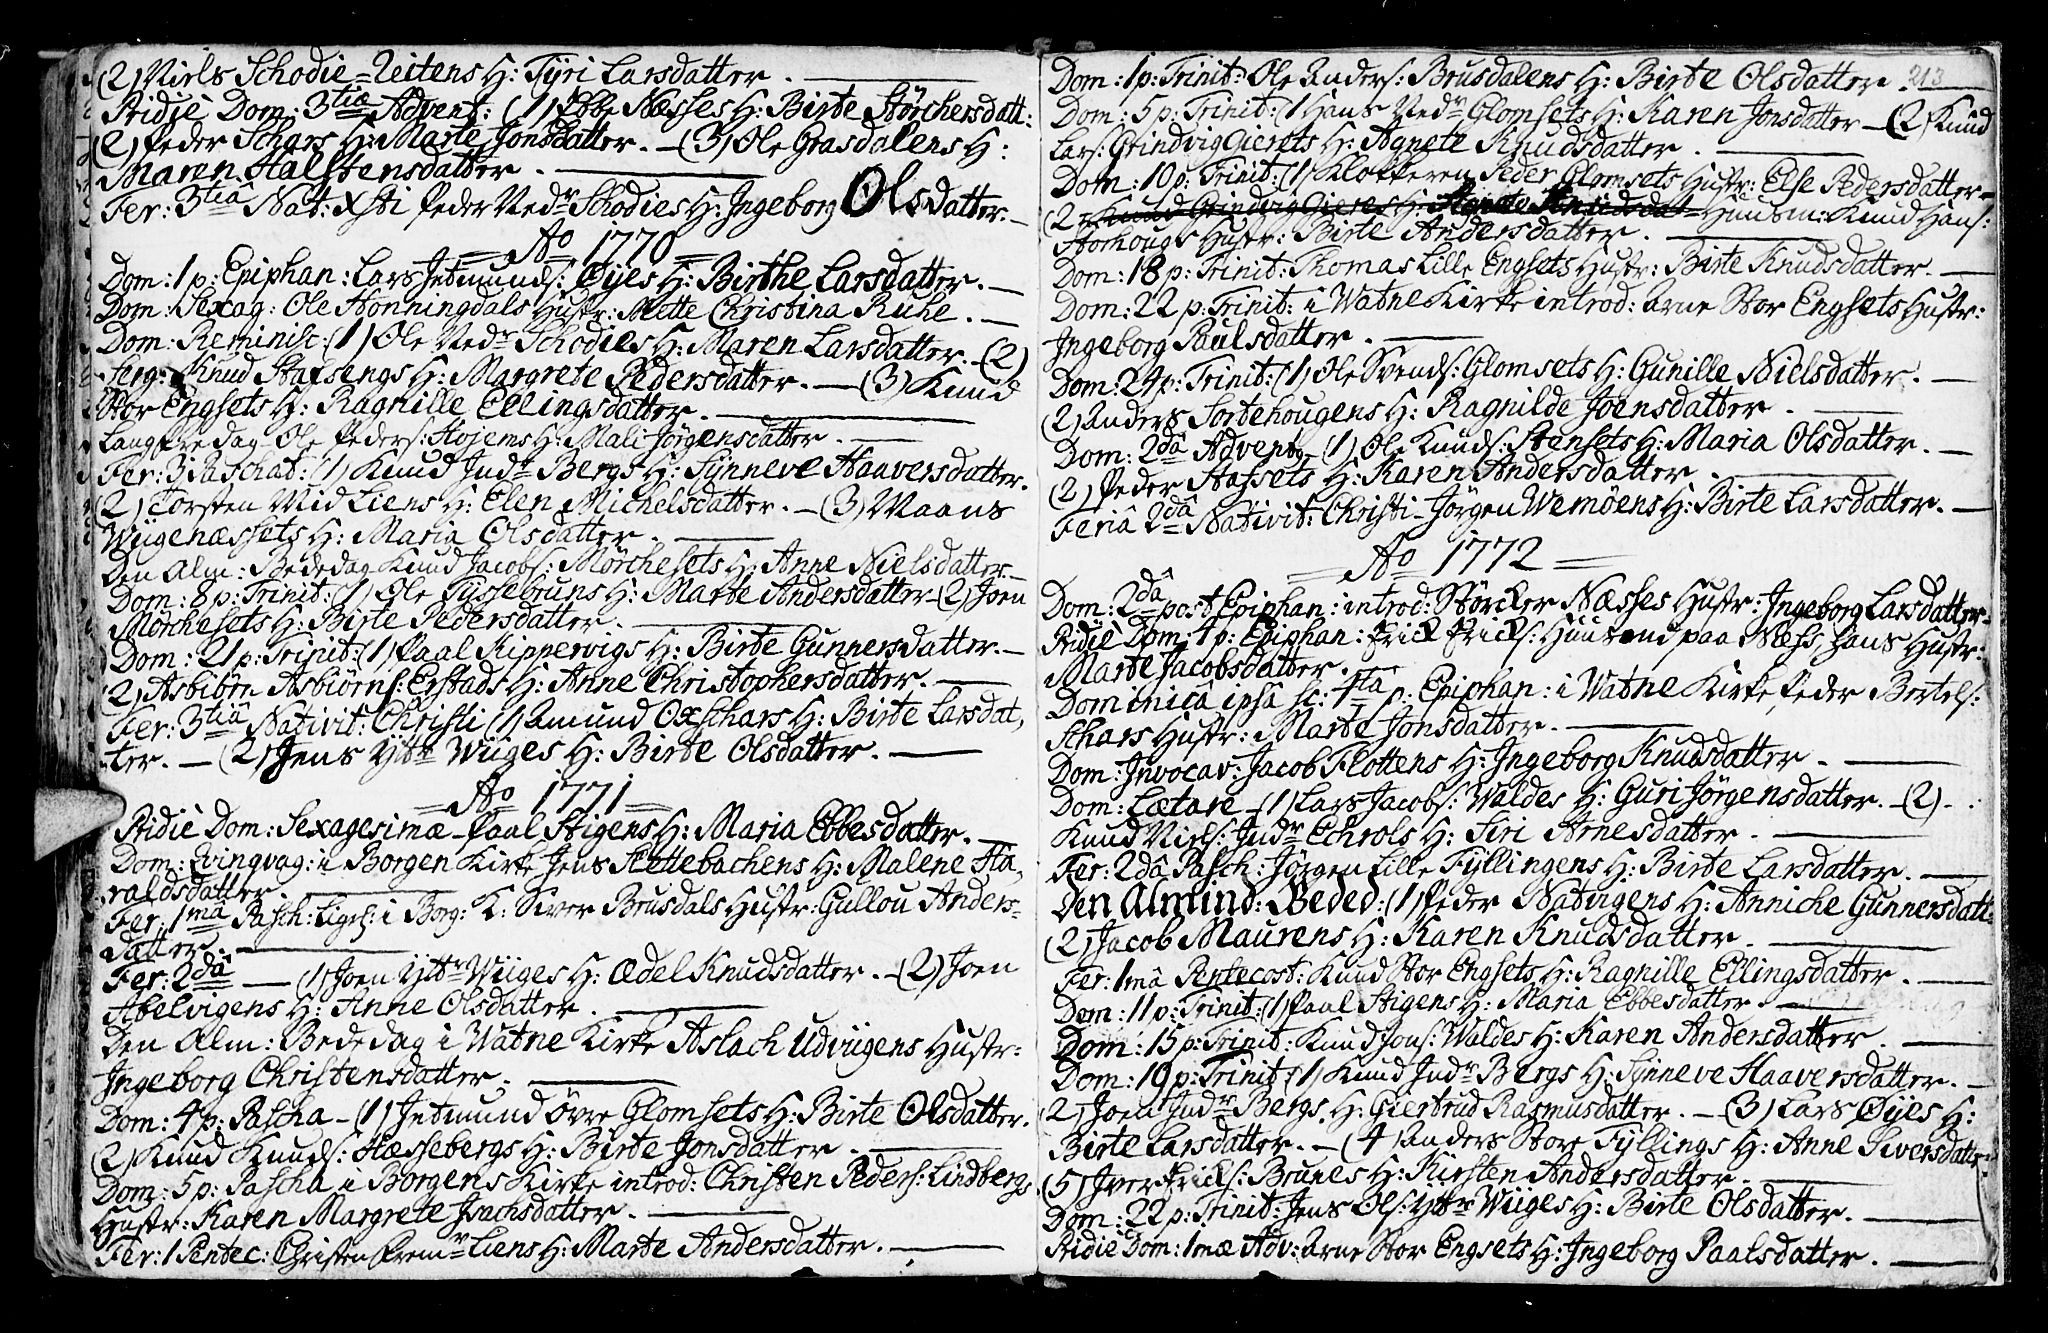 (2) Niels Schodie-Reitens H: Fÿri Larsdatter.
Pridiè Dom: 3tiæ Advent: (1) Ebbe Næsses H: Birte Störchersdatt:
(2) Peder Schars H: Marte Jonsdatter. – (3) Ole Grasdalens H:
Maren Halstensdatter.
Fer: 3tiâ Nat: Xsti Peder Nedr Schodies H: Ingeborg Olsdatter.
Ao 1770
Dom: 1 p: Epiphan: Lars Jetmunds: Øÿes H: Birthe Larsdatter.
Dom: Sexag: Ole Honningdals Hustr: Mette Christina Ruhe.
Dom: Reminisc: (1) Ole Nedr Schodies H: Maren Larsdatter. – (2)
Serg: Knud Stafsengs H: Margrete Pedersdatter. – (3) Knud
Stor Engsets H: Ragnille Ellingsdatter.
Langfredag Ole Peders: Hojems H: Mali Jörgensdatter.
Fer: 3 Paschat: (1) Knud Indr Bergs H: Sÿnneve Haaversdatter.
(2) Torsten Mid Liens H: Elen Michelsdatter. – (3) Maans
Wiigenæssets H: Maria Olsdatter.
Den Alm: Bededag Knud Jacobs: Mörchesets H: Anne Nielsdatter.
Dom: 8 p: Trinit: (1) Ole Tÿssebruns H: Marte Andersdatter – (2) Joen
Mörchesets H: Birte Pedersdatter.
Dom: 21 p: Trinit: (1) Paal Kippervigs H: Birte Gunnersdatter.
(2) Asbiörn Asbiörns: Erstads H: Anne Christophersdatter.
Fer: 3tiâ Nativit: Christi (1) Amund Oxschars H: Birte Larsdat,
ter. – (2) Jens Ÿttr Wiiges H: Birte Olsdatter.
Ao 1771
Pridiè Dom: Sexagesimæ – Paal Stigens H: Maria Ebbesdatter.
Dom: Qvinqvag: i Borgen Kirke Jens Slettebachens H: Malene Ha,
raldsdatter.
Fer: 1mâ Pasch: Liges: i Borg: K: Siver Brusdals Hustr: Gullou Anders-
datter.
Fer: 2dâ – (1) Joen Ÿttr Wiiges H: Ædel Knudsdatter. – (2) Joen
Abelvigens H: Anne Olsdatter.
Den Alm: Bededag i Watne Kirke Aslach Udviigens Hustr:
Ingeborg Christensdatter.
Dom: 4 p: Pascha – (1) Jetmund övre Glomsets H: Birte Olsdatter.
(2) Knud Knuds: Hæssebergs H: Birte Jonsdatter.
Dom: 5 p: Pascha i Borgens Kirke introd: Christen Peders: Lindbergs
Hustr: Karen Margrete Isachsdatter.
Fer: 1 Pentec: Christen Fremr Liens H: Marte Andersdatter.
213
Dom: 1 p: Trinit: Ole Anders: Brusdalens H: Birte Olsdatter.
Dom: 5 p: Trinit: (1 Hans Nedr Glomsets H: Karen Jonsdatter – (2) Knud
Lars: Grindvig Gierets H: Agnete Knudsdatter.
Dom: 10 p: Trinit: (1) Klokkeren Peder Glomsets Hustr: Else Pedersdatter –
(2 Knud Grindvig Gieres H: Agnete Knudsdat – Huusm: Knud Hans:
Aorhougs Hustr: Birte Andersdatter.
Dom: 18 p: Trinit: Thomas Lille Engsets Hustr: Birte Knudsdatter.
Dom: 22 p: Trinit: i Watne Kirke introd: Arne Stor Engsets Hustr:
Ingeborg Paulsdatter.
Dom: 24 p: Trinit: (1) Ole Svends: Glomsets H: Gunille Nielsdatter.
(2) Anders Sortehougens H: Ragnilde Joensdatter.
Dom: 2dâ Advent, (1) Ole Knuds: Stensets H: Maria Olsdatter.
(2) Peder Hassets H: Karen Andersdatter.
Feriâ 2dâ Nativit: Christi – Jörgen Wemöens H: Birte Larsdatter.
Ao 1772
Dom: 2dâ post Epiphan: introd: Störcker Næsses Hustr: Ingeborg Larsdatter.
Pridiè Dom: 1 p: Epiphan: Erick Ericks: Huusmd paa Næss, hans Hustr:
Marte Jacobsdatter.
Dominicâ ipsâ sc: 1stâ p: Epiphan: i Watne Kirke, Peder Bertels:
Schars Hustr: Marte Jonsdatter.
Dom: Invocav: Jacob Flottens H: Ingeborg Knudsdatter.
Dom: Lætare – (1) Lars Jacobs: Waldes H: Guri Jörgensdatter. – (2).
Knud Niels: Indr Echrols H: Siri Arnesdatter.
Fer: 2dâ Pasch: Jörgen Lille Fÿllingens H: Birte Larsdatter.
Den Almind: Beded: (1) Peder Natvigens H: Anniche Gunnersdatt:
(2) Jacob Maurens H: Karen Knudsdatter.
Fer: 1mâ Pentecost: Knud Stor Engsets H: Ragnille Ellingsdatter.
Dom: 11 p: Trinit: (1) Paal Stigens H: Maria Ebbesdatter.
Dom: 15 p: Trinit: Knud Jons: Waldes H: Karen Andersdatter.
Dom: 19 p: Trinit: (1) Knud Indr Bergs H: Sÿnneve Haaversdatter.
(2) Joen Indr Bergs H: Giertrud Rasmusdatter. – (3) Lars Øÿes H:
Birte Larsdatter. – (4) Anders Store Fÿllings H: Anne Siversdatter.
(5) Iver Ericks: Brunes H: Kirsten Andersdatter.
Dom: 22 p: Trinit: Jens Ols: Ÿttr Wiiges H: Birte Olsdatter.
Pridiè Dom: 1mæ Adv: Arne Stor Engsets H: Ingeborg Paalsdatter.